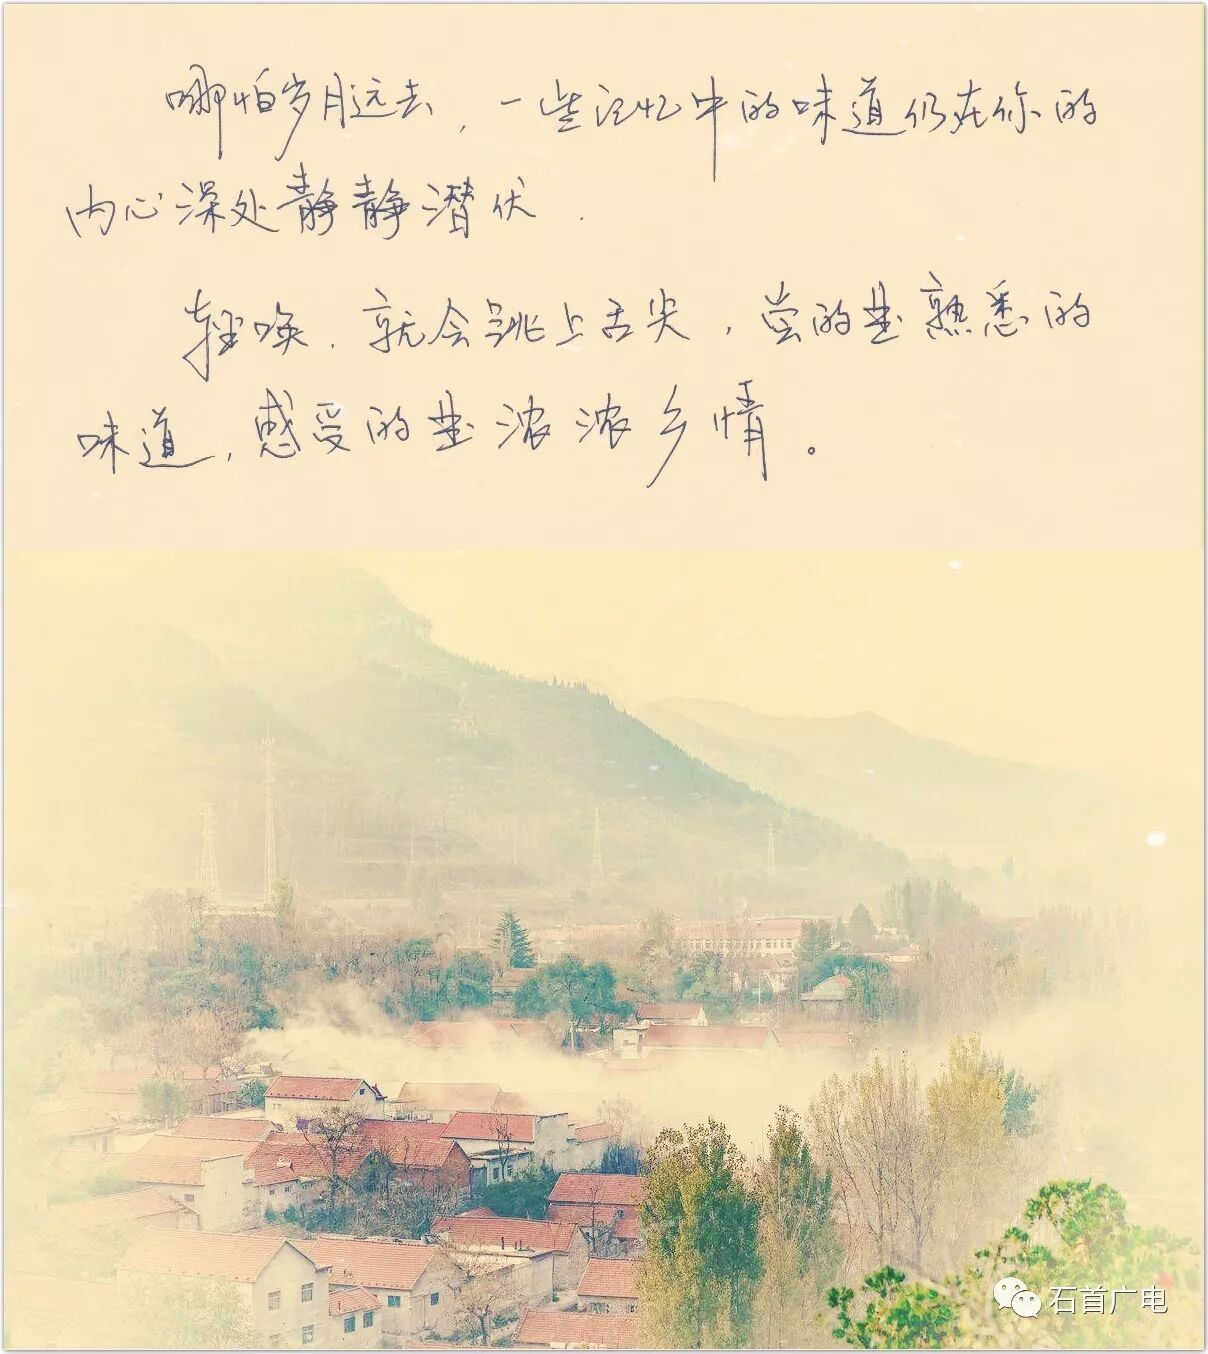 哪怕岁月远去，一些记忆中的味道仍在你的
内心深处静静潜伏．
轻唤，就会跳上舌尖，尝的是熟悉的
味道，感受的是浓浓乡情。
石首广电